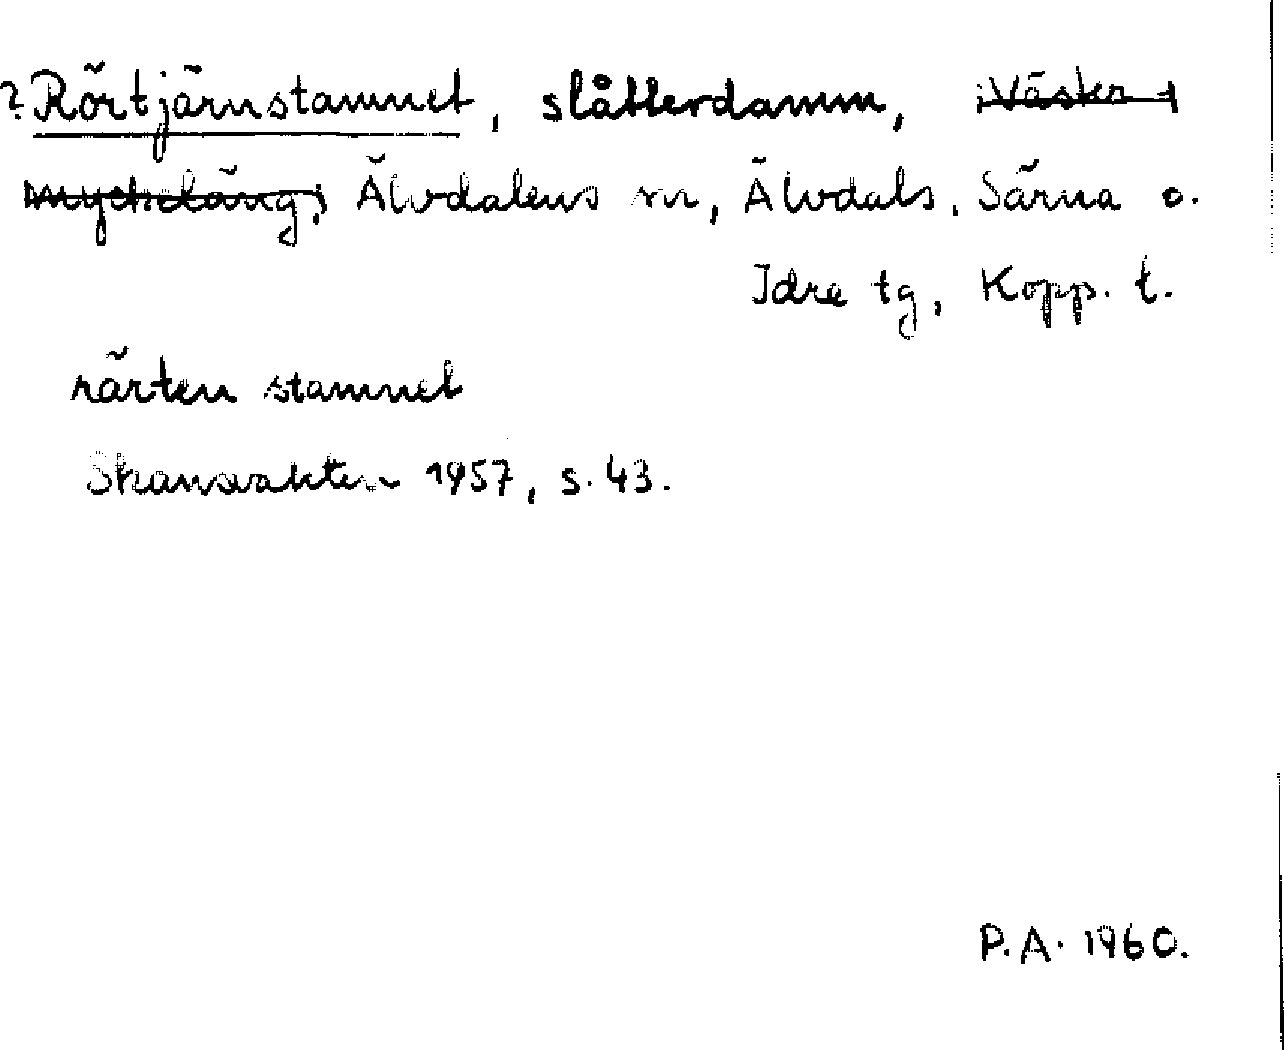 ? Rörtjärnstamnet, slåtterdamm,
Älvdalens sn, Älvdals, Särna o.
Idre tg, Kopp. t.
rärten stamnet
Skansvakten 1957, s. 43.
P.A. 1960.